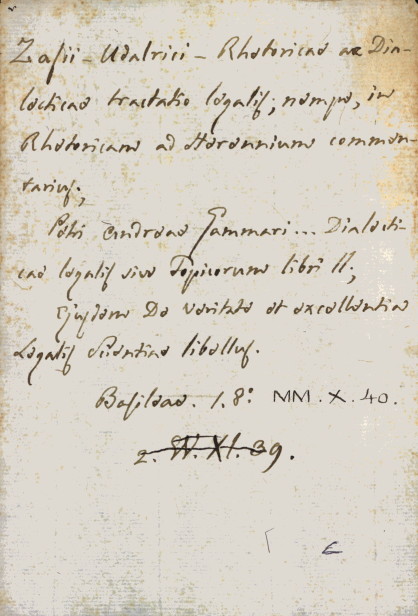 Zasii - Udalrici - Rhetoricae ac Dia-
lecticae tractatio legalis; nempe, in
Rhetoricam ad Herennium commen-
tarius;
Petri Andreae Gammari... Dialecti-
cae legalis sive Topicorum libri II;
Ejusdem De veritate et excellentia
Legalis scientiae libellus.
Basileae. 1. 8º. MM.X.40.
2. W.XI.39.